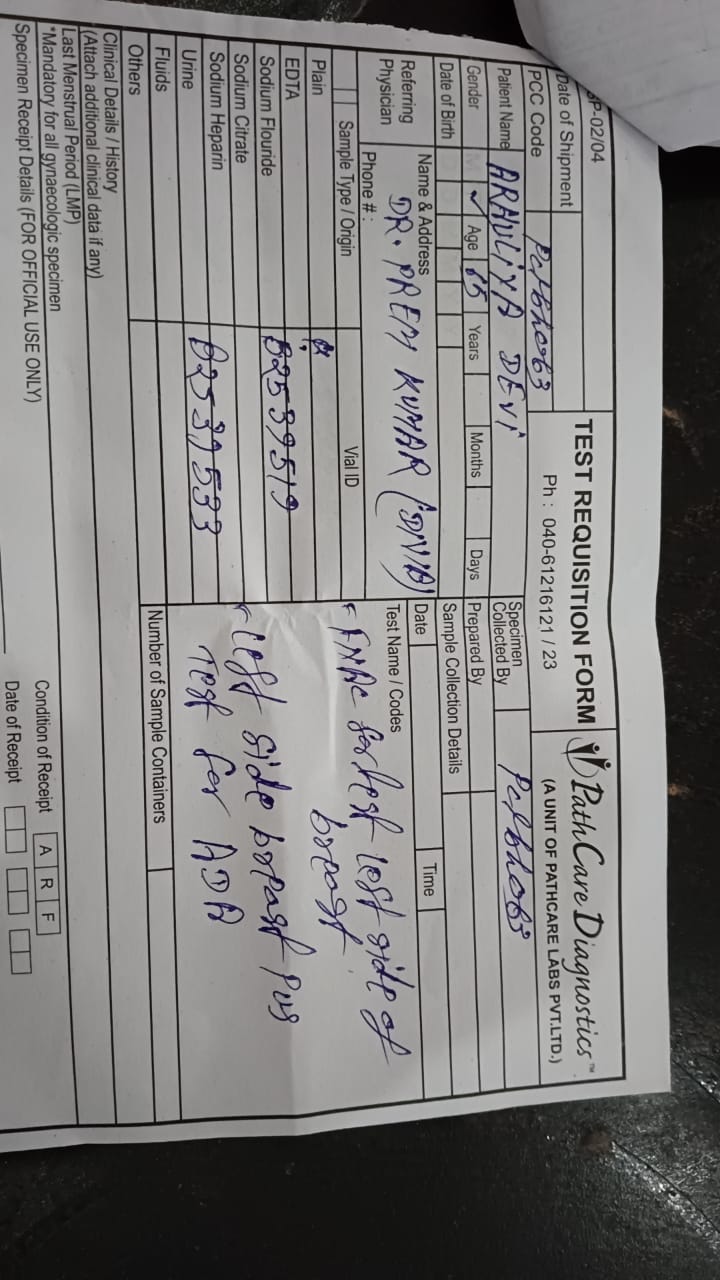 SP-02/04
TEST REQUISITION FORM
PathCare Diagnostics™
(A UNIT OF PATHCARE LABS PVT.LTD.)
Date of Shipment
Ph : 040-61216121 / 23
PCC Code PatBh063
Specimen Collected By PatBh063
Patient Name ARAULIYA DEVI
Gender M ✓ Age 65 Years Months Days
Prepared By
Date of Birth
Sample Collection Details
Date Time
Referring Physician
Name & Address
DR. PREM KUMAR (DNB)
Phone # :
Test Name / Codes
Sample Type / Origin
Vial ID
Plain
EDTA
Sodium Flouride B2539519
Sodium Citrate
Sodium Heparin
Urine B2539533
Fluids
Others
FNAC for left side of
breast
Left side breast Pus
Test for ADA
Number of Sample Containers
Clinical Details / History
(Attach additional clinical data if any)
Last Menstrual Period (LMP)
*Mandatory for all gynaecologic specimen
Specimen Receipt Details (FOR OFFICIAL USE ONLY)
Condition of Receipt A R F
Date of Receipt